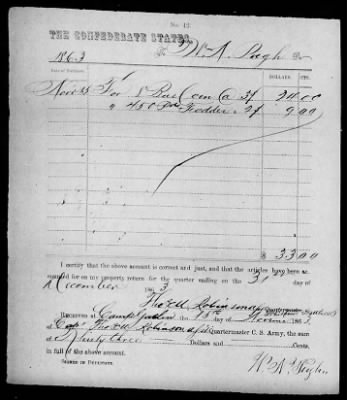 No. 12.
THE CONFEDERATE STATES,
1863 To Wm A. Pugh Dr
DATE OF PURCHASE. DOLLARS. CTS.
Nov 15 For 8 Bus Corn @ 3$ 24.00
" 450 lbs Fodder 2$ 9.00
$ 33.00
I certify that the above account is correct and just, and that the articles have been accounted for on my property return for the quarter ending on the 31st day of
December 1863.
Thos M Robinson
RECEIVED at Camp the 15th day of 1863,
of Capt Thos M Robinson Quartermaster C. S. Army, the sum
of three Dollars and Cents,
in full of the above account.
[SIGNED IN DUPLICATE.]
Wm A